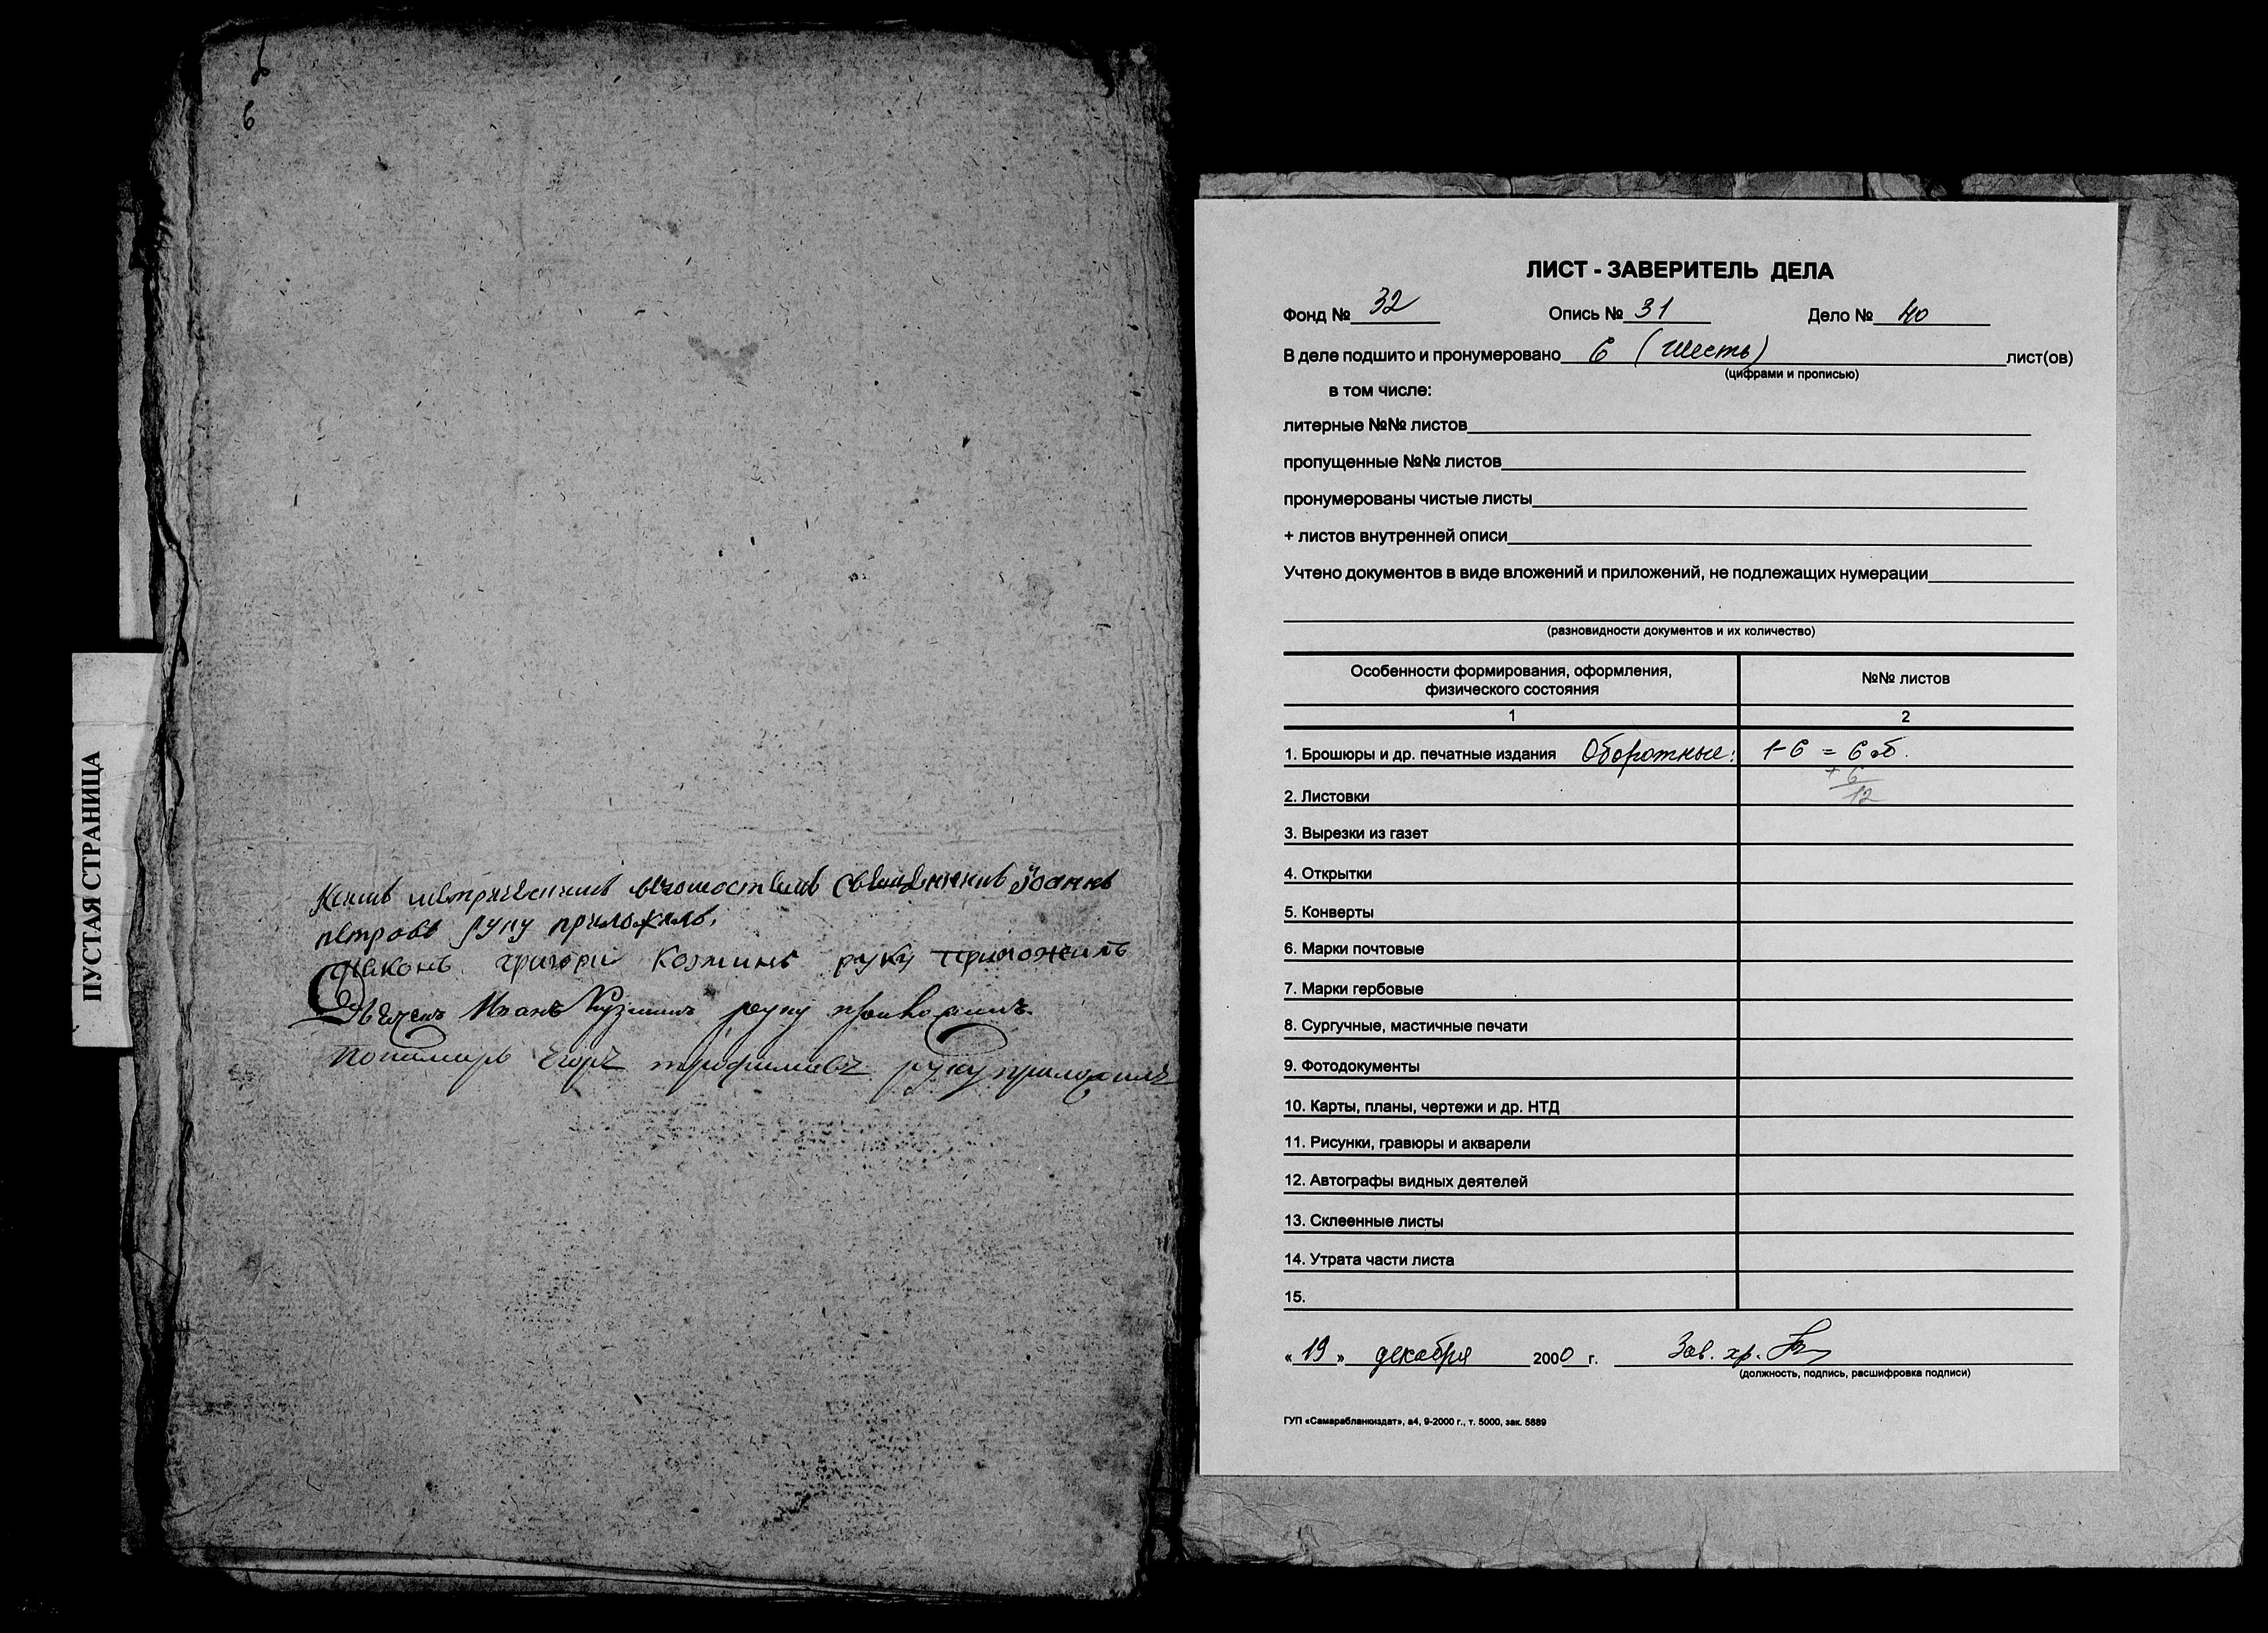 6
ПУСТАЯ СТРАНИЦА
Ксимъ метрическимъ ведомостямъ священникъ Іоаннъ
петровъ руку приложилъ,
Диаконъ григореи Козминъ руку приложилъ
Иванъ Кузминъ руку приложилъ
Пономарь Егоръ трофимовъ руку приложилъ
ЛИСТ - ЗАВЕРИТЕЛЬ ДЕЛА
Фонд № 32 Опись № 31 Дело № 40
В деле подшито и пронумеровано 6 (шесть) лист(ов)
(цифрами и прописью)
в том числе:
литерные №№ листов
пропущенные №№ листов
пронумерованы чистые листы
+ листов внутренней описи
Учтено документов в виде вложений и приложений, не подлежащих нумерации
(разновидности документов и их количество)
Особенности формирования, оформления, 
физического состояния
№№ листов
1 2
1. Брошюры и др. печатные издания Оборотные: 1-6 = 6 об.
+ 6
12
2. Листовки
3. Вырезки из газет
4. Открытки
5. Конверты
6. Марки почтовые
7. Марки гербовые
8. Сургучные, мастичные печати
9. Фотодокументы
10. Карты, планы, чертежи и др. НТД
11. Рисунки, гравюры и акварели
12. Автографы видных деятелей
13. Склеенные листы
14. Утрата части листа
15.
« 19 » декабря 2000 г. Зав. хр.
(должность, подпись, расшифровка подписи)
ГУП «Самарабланкиздат», а4, 9-2000 г., т. 5000, зак. 5889